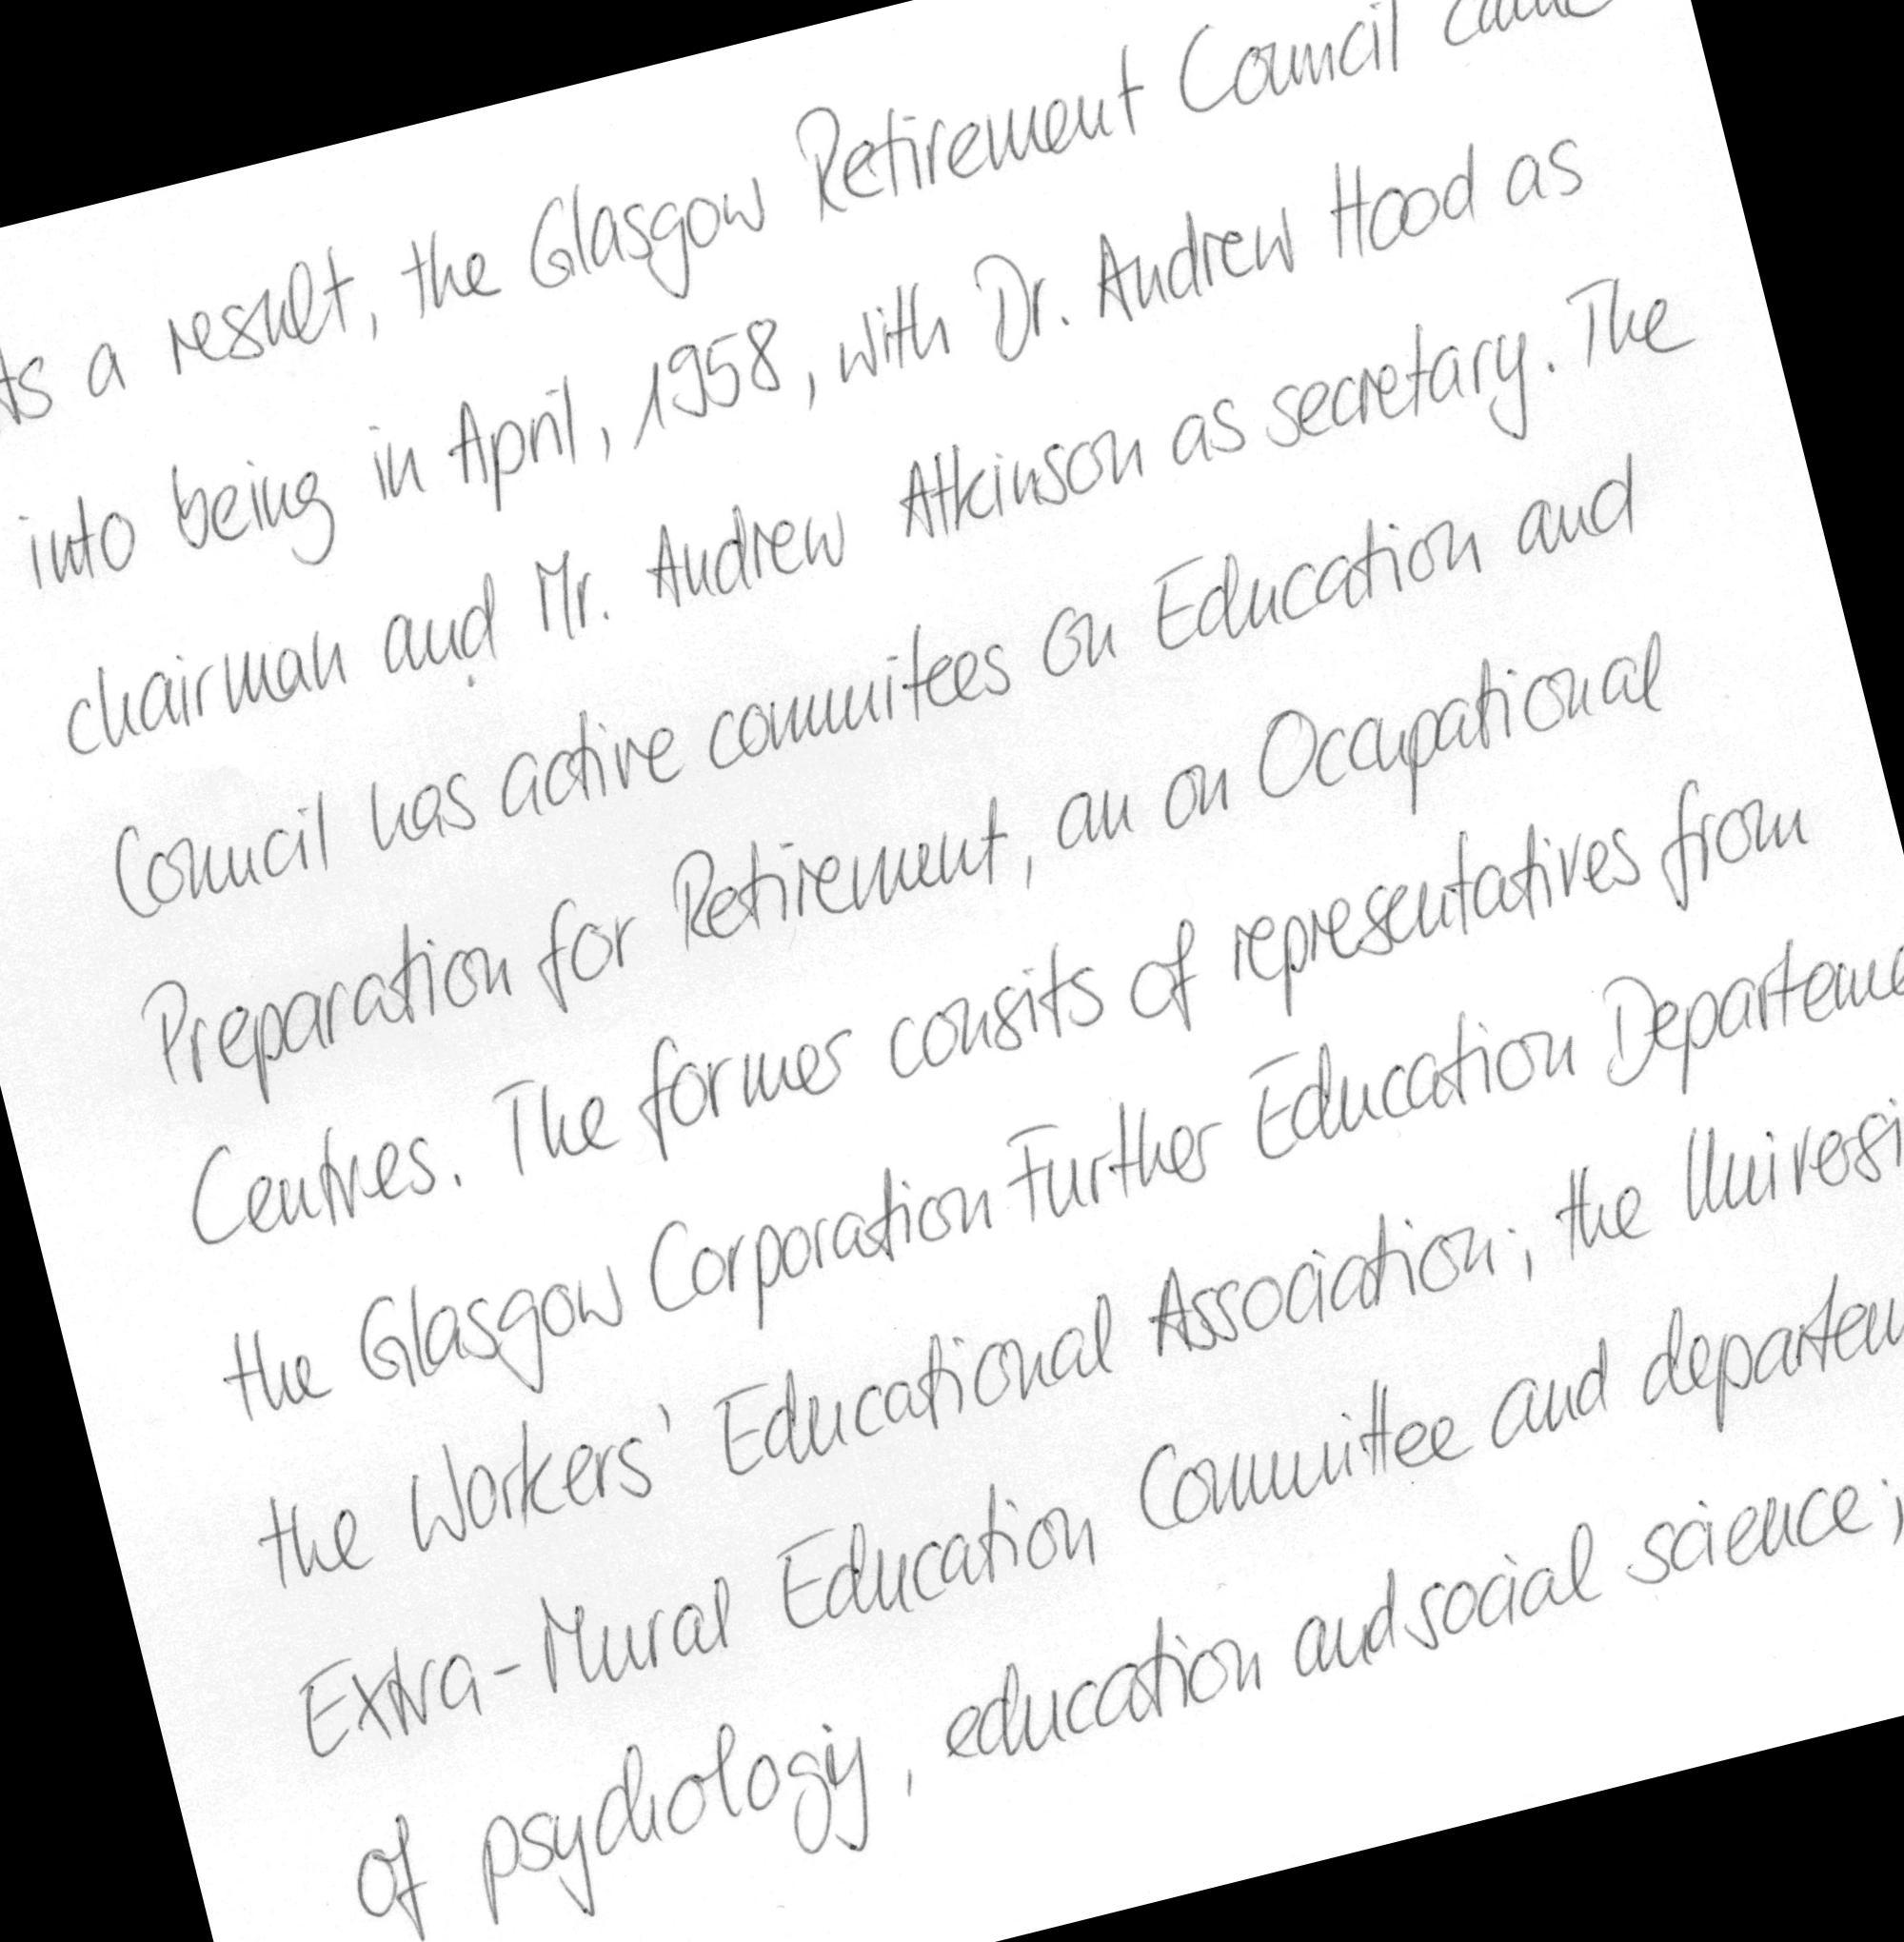 As a result, the Glasgow Retirement Council came
into being in April, 1958, with Dr. Andrew Hood as
chairman and Mr. Andrew Atkinson as secretary. The
Council has active commitees on Education and
Preparation for Retirement, an on Occupational
Centres. The former consits of representatives from
the Glasgow Corporation Further Education
the Workers' Educational Association; the
Extra-Mural Education Committee and
of psychology, education and social science;